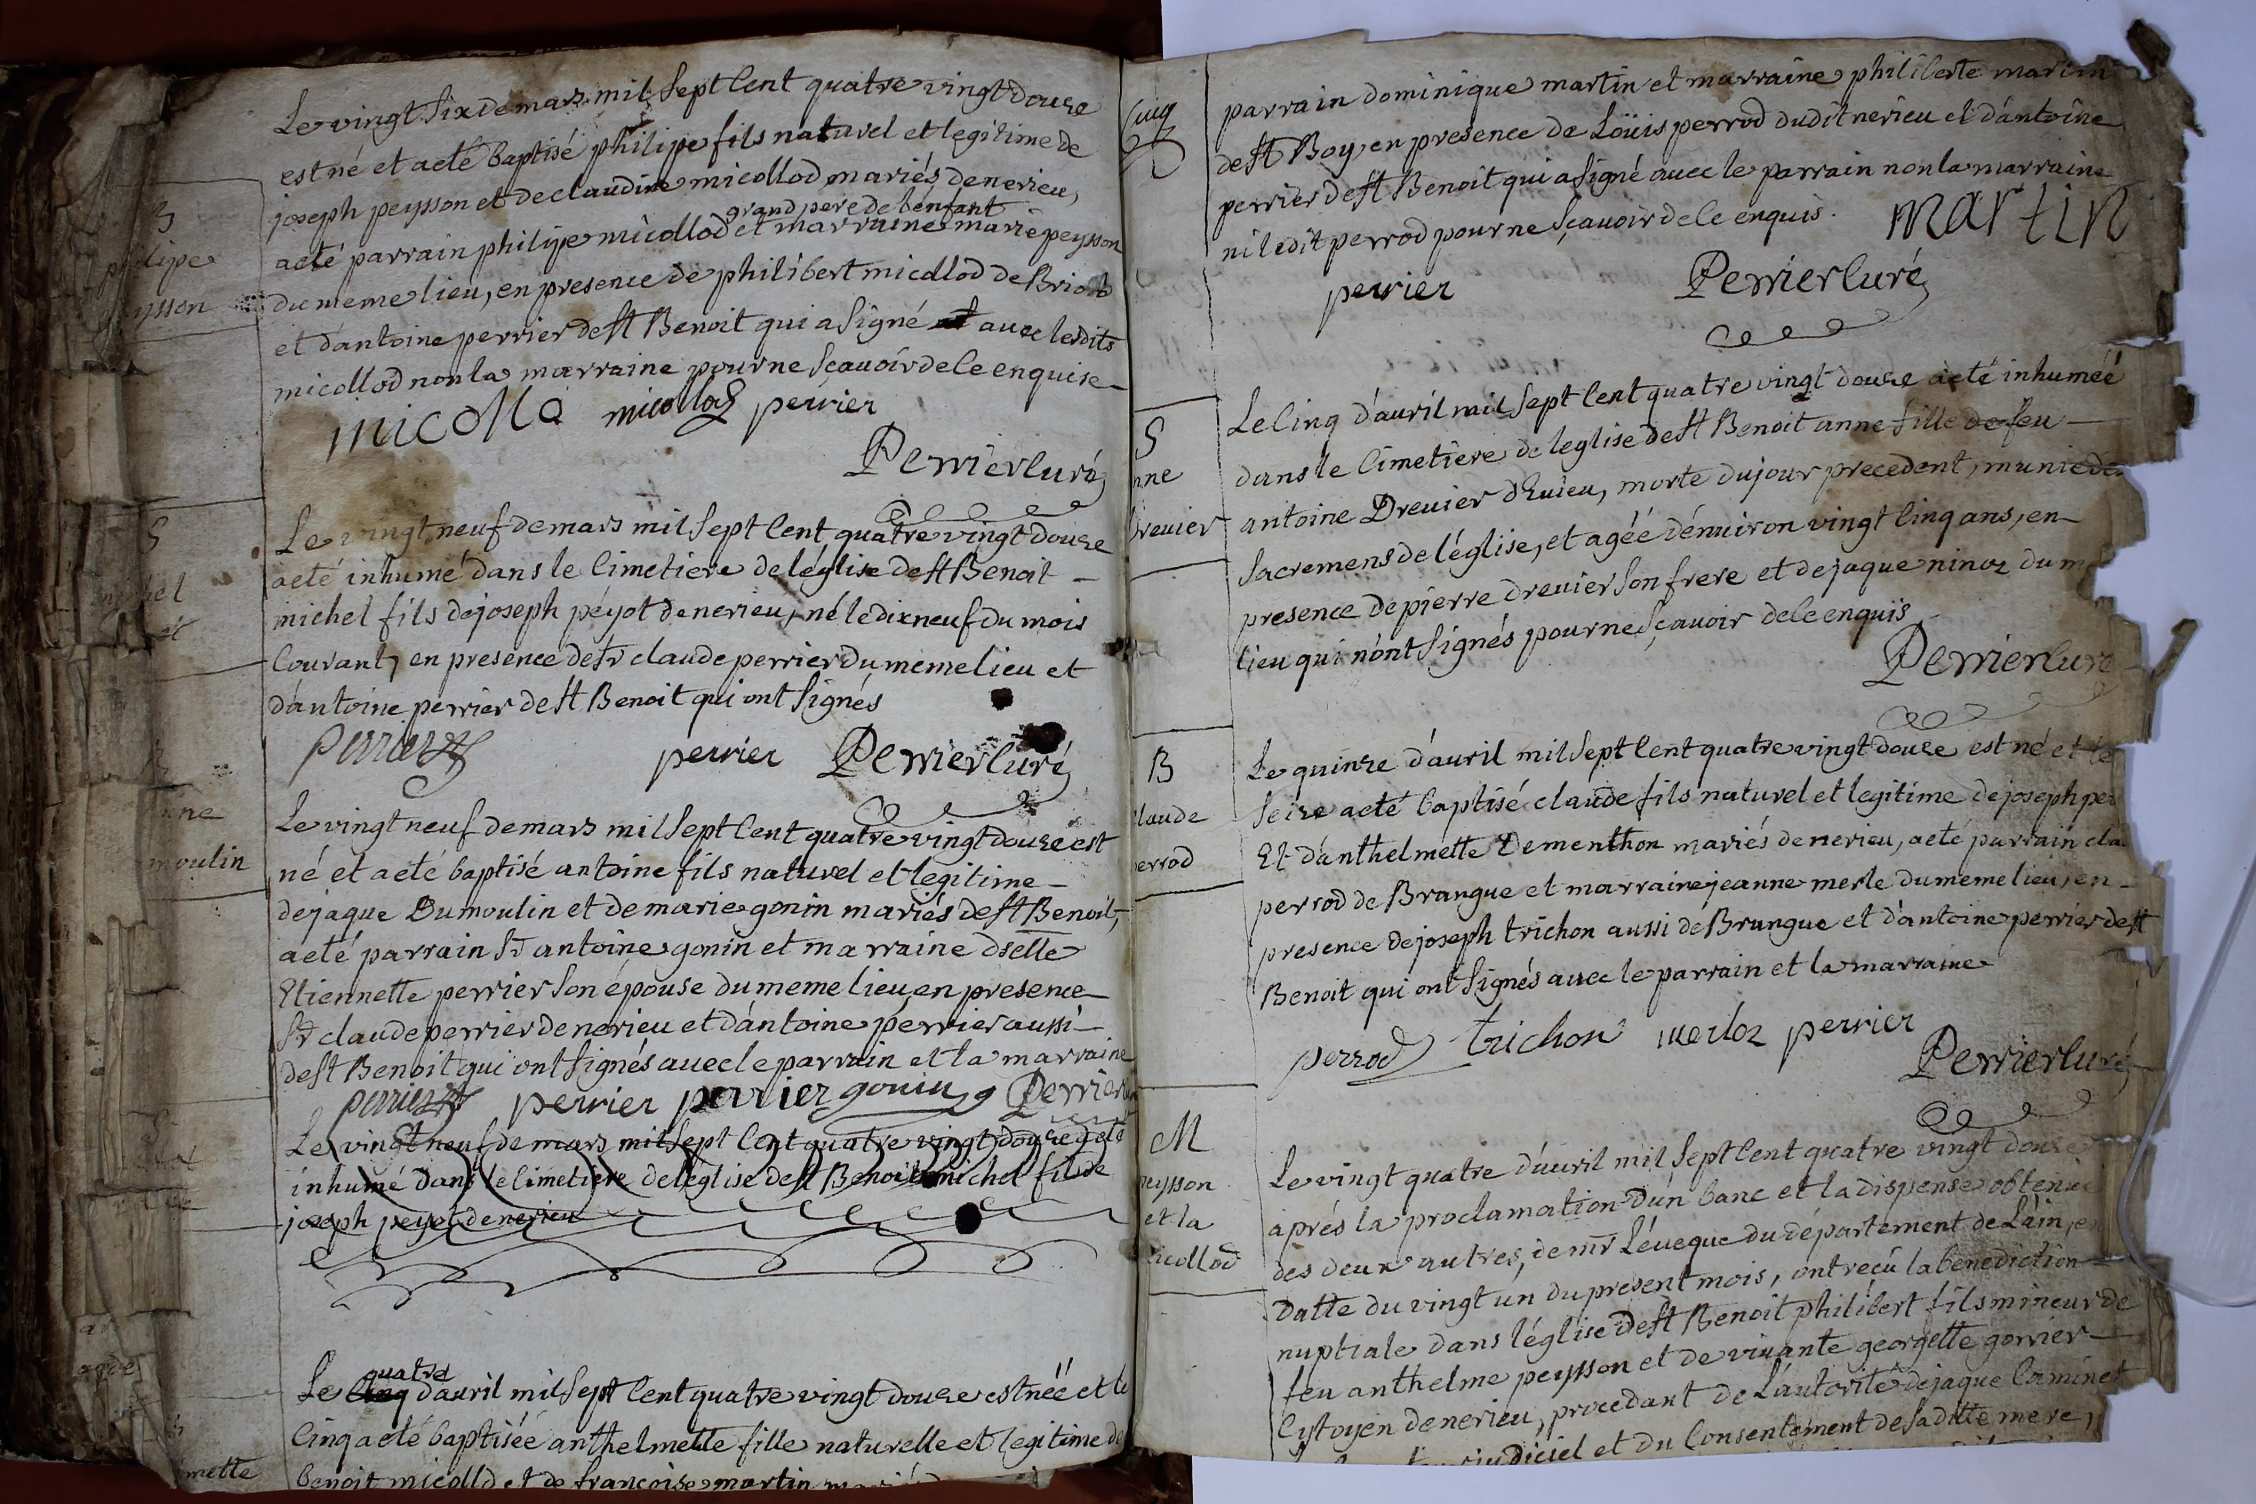 Le vingt six de mars mil sept cent quatre vingt douze
est né et a eté baptisé philipe fils naturel et legitime de
joseph peysson et de claudine micollod mariés de nerieu,
grand pere de lenfant
a eté parrain philipe micollod et marraine marie peysson
du meme lieu, en presence de philibert micollod de Briord
et d'antoine perrier de st Benoit qui a signé avec lesdits
micollod non la marraine pour ne sçavoir de ce enquise
B
philipe
ysson
micollo micollod perrier
Perrier curé
Le vingt neuf de mars mil sept cent quatre vingt douze
a eté inhumé dans le cimetiere de léglise de st Benoit
michel fils de joseph péyot de nerieu, né le dix neuf du mois
courant, en presence de sr claude perrier du meme lieu et
d'antoine perrier de st Benoit qui ont signés
S
perrier perrier Perrier curé
Le vingt neuf de mars mil sept cent quatre vingt douze est
né et a eté baptisé antoine fils naturel et legitime
de jaque Dumoulin et de marie gonin mariés de st Benoit,
a eté parrain sr antoine gonin et marraine dselle
Etiennette perrier son épouse du meme lieu, en presence
sr claude perrier de nerieu et d'antoine perrier aussi
de st Benoit qui ont signés avec le parrain et la marraine
moulin
perrier perrier perrier gonin Perrier
Le vingt neuf de mars mil sept cent quatre vingt douze a eté
inhumé dans le cimetiere de leglise de st Benoit michel fils de
joseph peyot de nerieu
quatre
Le cinq d'avril mil sept cent quatre vingt douze est néé et le
cinq a eté baptiséé anthelmette fille naturelle et legitime de
benoit micollod et de francoise martin mariés
mette
parrain dominique martin et marraine philiberte martin
de st Boy en presence de Loüis perrod dudit nerieu et d'antoine
perrier de st Benoit qui a signé avec le parrain non la marraine
ni ledit perrod pour ne sçavoir de ce enquis.
martin
perrier Perrier curé
Le cinq d'avril mil sept cent quatre vingt douze a eté inhuméé
dans le cimetiere de leglise de st Benoit anne fille de feu
antoine Drevier d'Evieu, morte du jour precedent, munie des
sacremens de léglise, et agéé dénviron vingt cinq ans, en
presence de pierre drevier son frere et de jaque ninoz du m
lieu qui n'ont signés pour ne sçavoir de ce enquis
S
nne
Drevier
Perrier curé
Le quinze d'avril mil sept cent quatre vingt douze est né et le
seize a eté baptisé claude fils naturel et legitime de joseph per
Et d'anthelmette Dementhon mariés de nerieu, a eté parrain cla
perrod de Brangue et marraine jeanne merle du meme lieu, en
presence de joseph trichon aussi de Brangue et d'antoine perrier de st
Benoit qui ont signés avec le parrain et la marraine
B
laude
perrod
perrod trichon merloz perrier
Perrier curé
Le vingt quatre d'avril mil sept cent quatre vingt douze
aprés la proclamation d'un banc et la dispense obtenue
des deux autres, de mr Léveque du département de Láin, en
datte du vingt un du present mois, ont reçû la benediction
nuptiale dans léglise de st Benoit philibert fils mineur de
feu anthelme peysson et de vivante georgette gorrier
Cytoyen de nerieu, procedant de L'autorité de jaque Caminet
judiciel et du Consentement de sa ditte mere,
M
peysson
et la
micollod